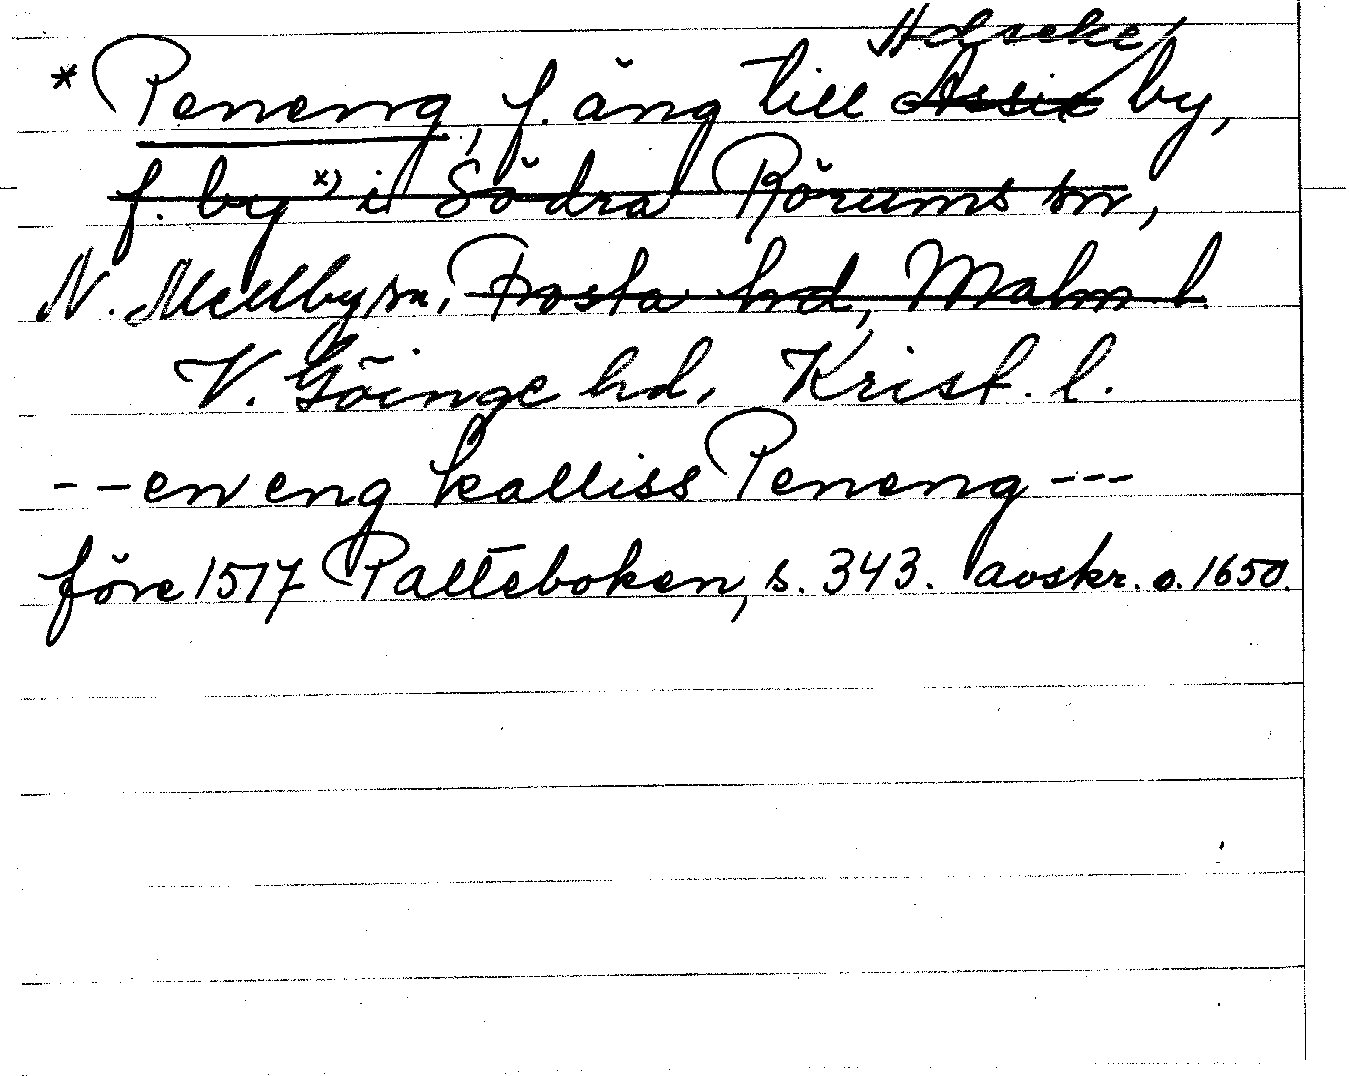 Adseke
* Peneng, f. äng till by,
f. by *) i Södra Rörums sn,
N. Mellby sn, Frosta hd, Malm l.
V. Göinge hd, Krist. l.
- - en eng kalliss Peneng - - -
före 1517 Palteboken, s. 343. avskr. o. 1650.